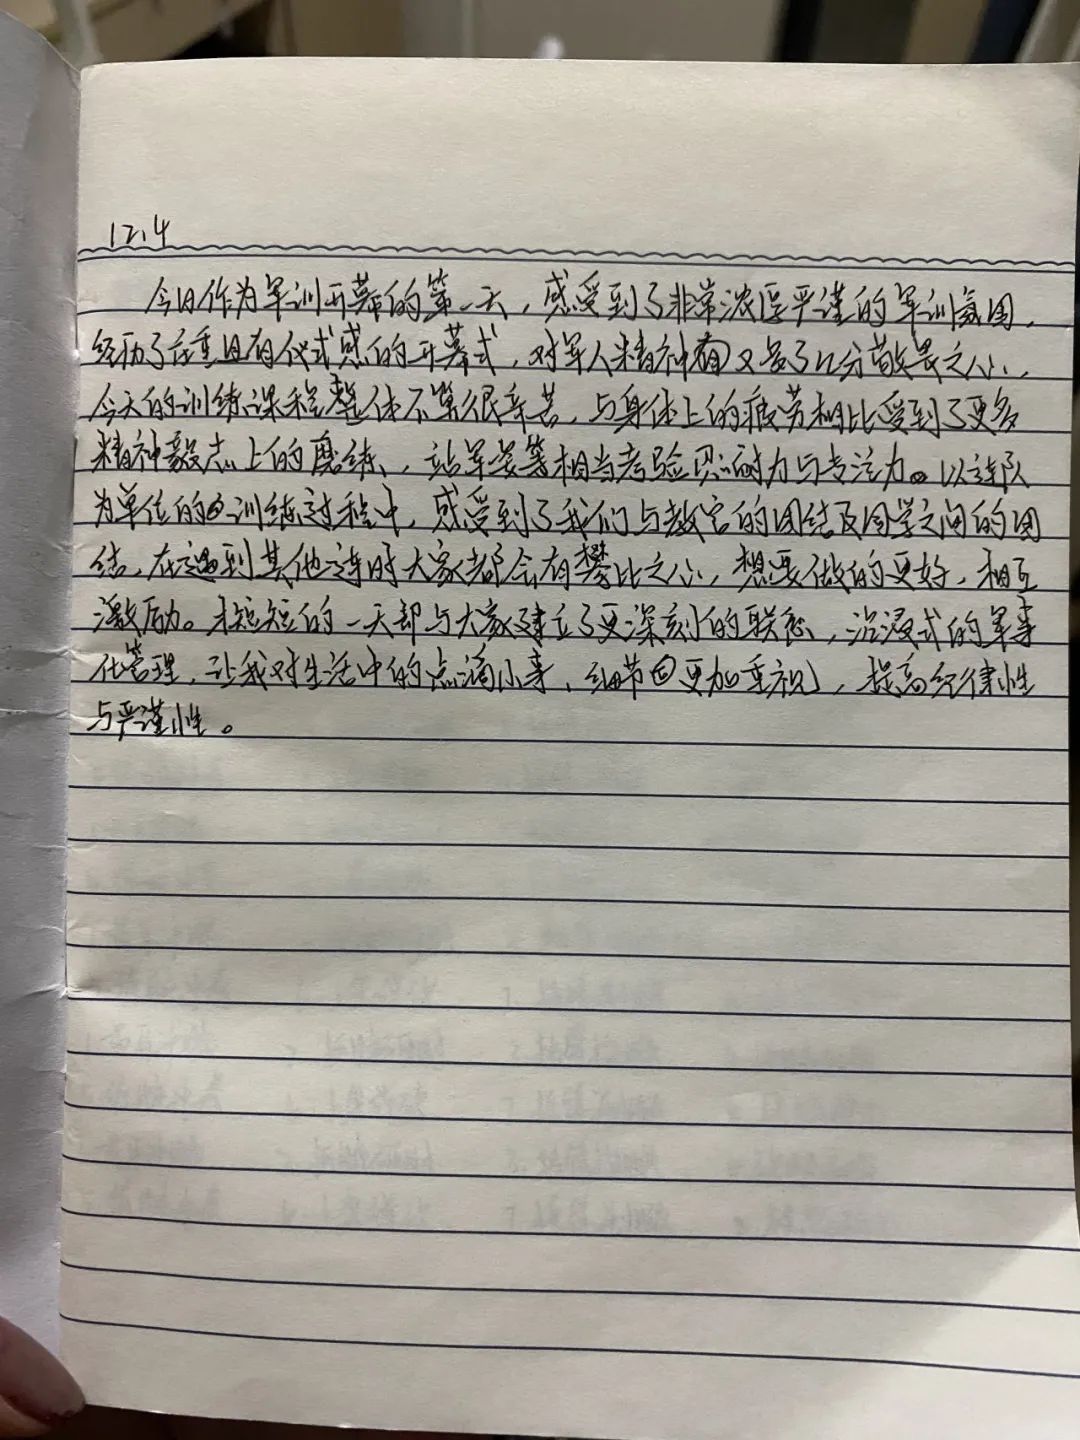 12.4
今日作为军训开幕的第一天，感受到了非常浓厚严谨的军训氛围，
经历了庄重且有仪式感的开幕式，对军人精神有又多了几分敬畏之心，
今天的训练课程整体不算很辛苦，与身体上的疲劳相比受到了更多
精神毅志上的磨练，站军姿等相当考验忍耐力与专注力。以连队
为单位的训练过程中，感受到了我们与教官的团结及同学之间的团
结，在遇到其他连时大家都会有攀比之心，想要做的更好，相互
激励。才短短的一天却与大家建立了更深刻的联系，沉浸式的军事
化管理，让我对生活中的点滴小事、细节更加重视，提高纪律性
与严谨性。